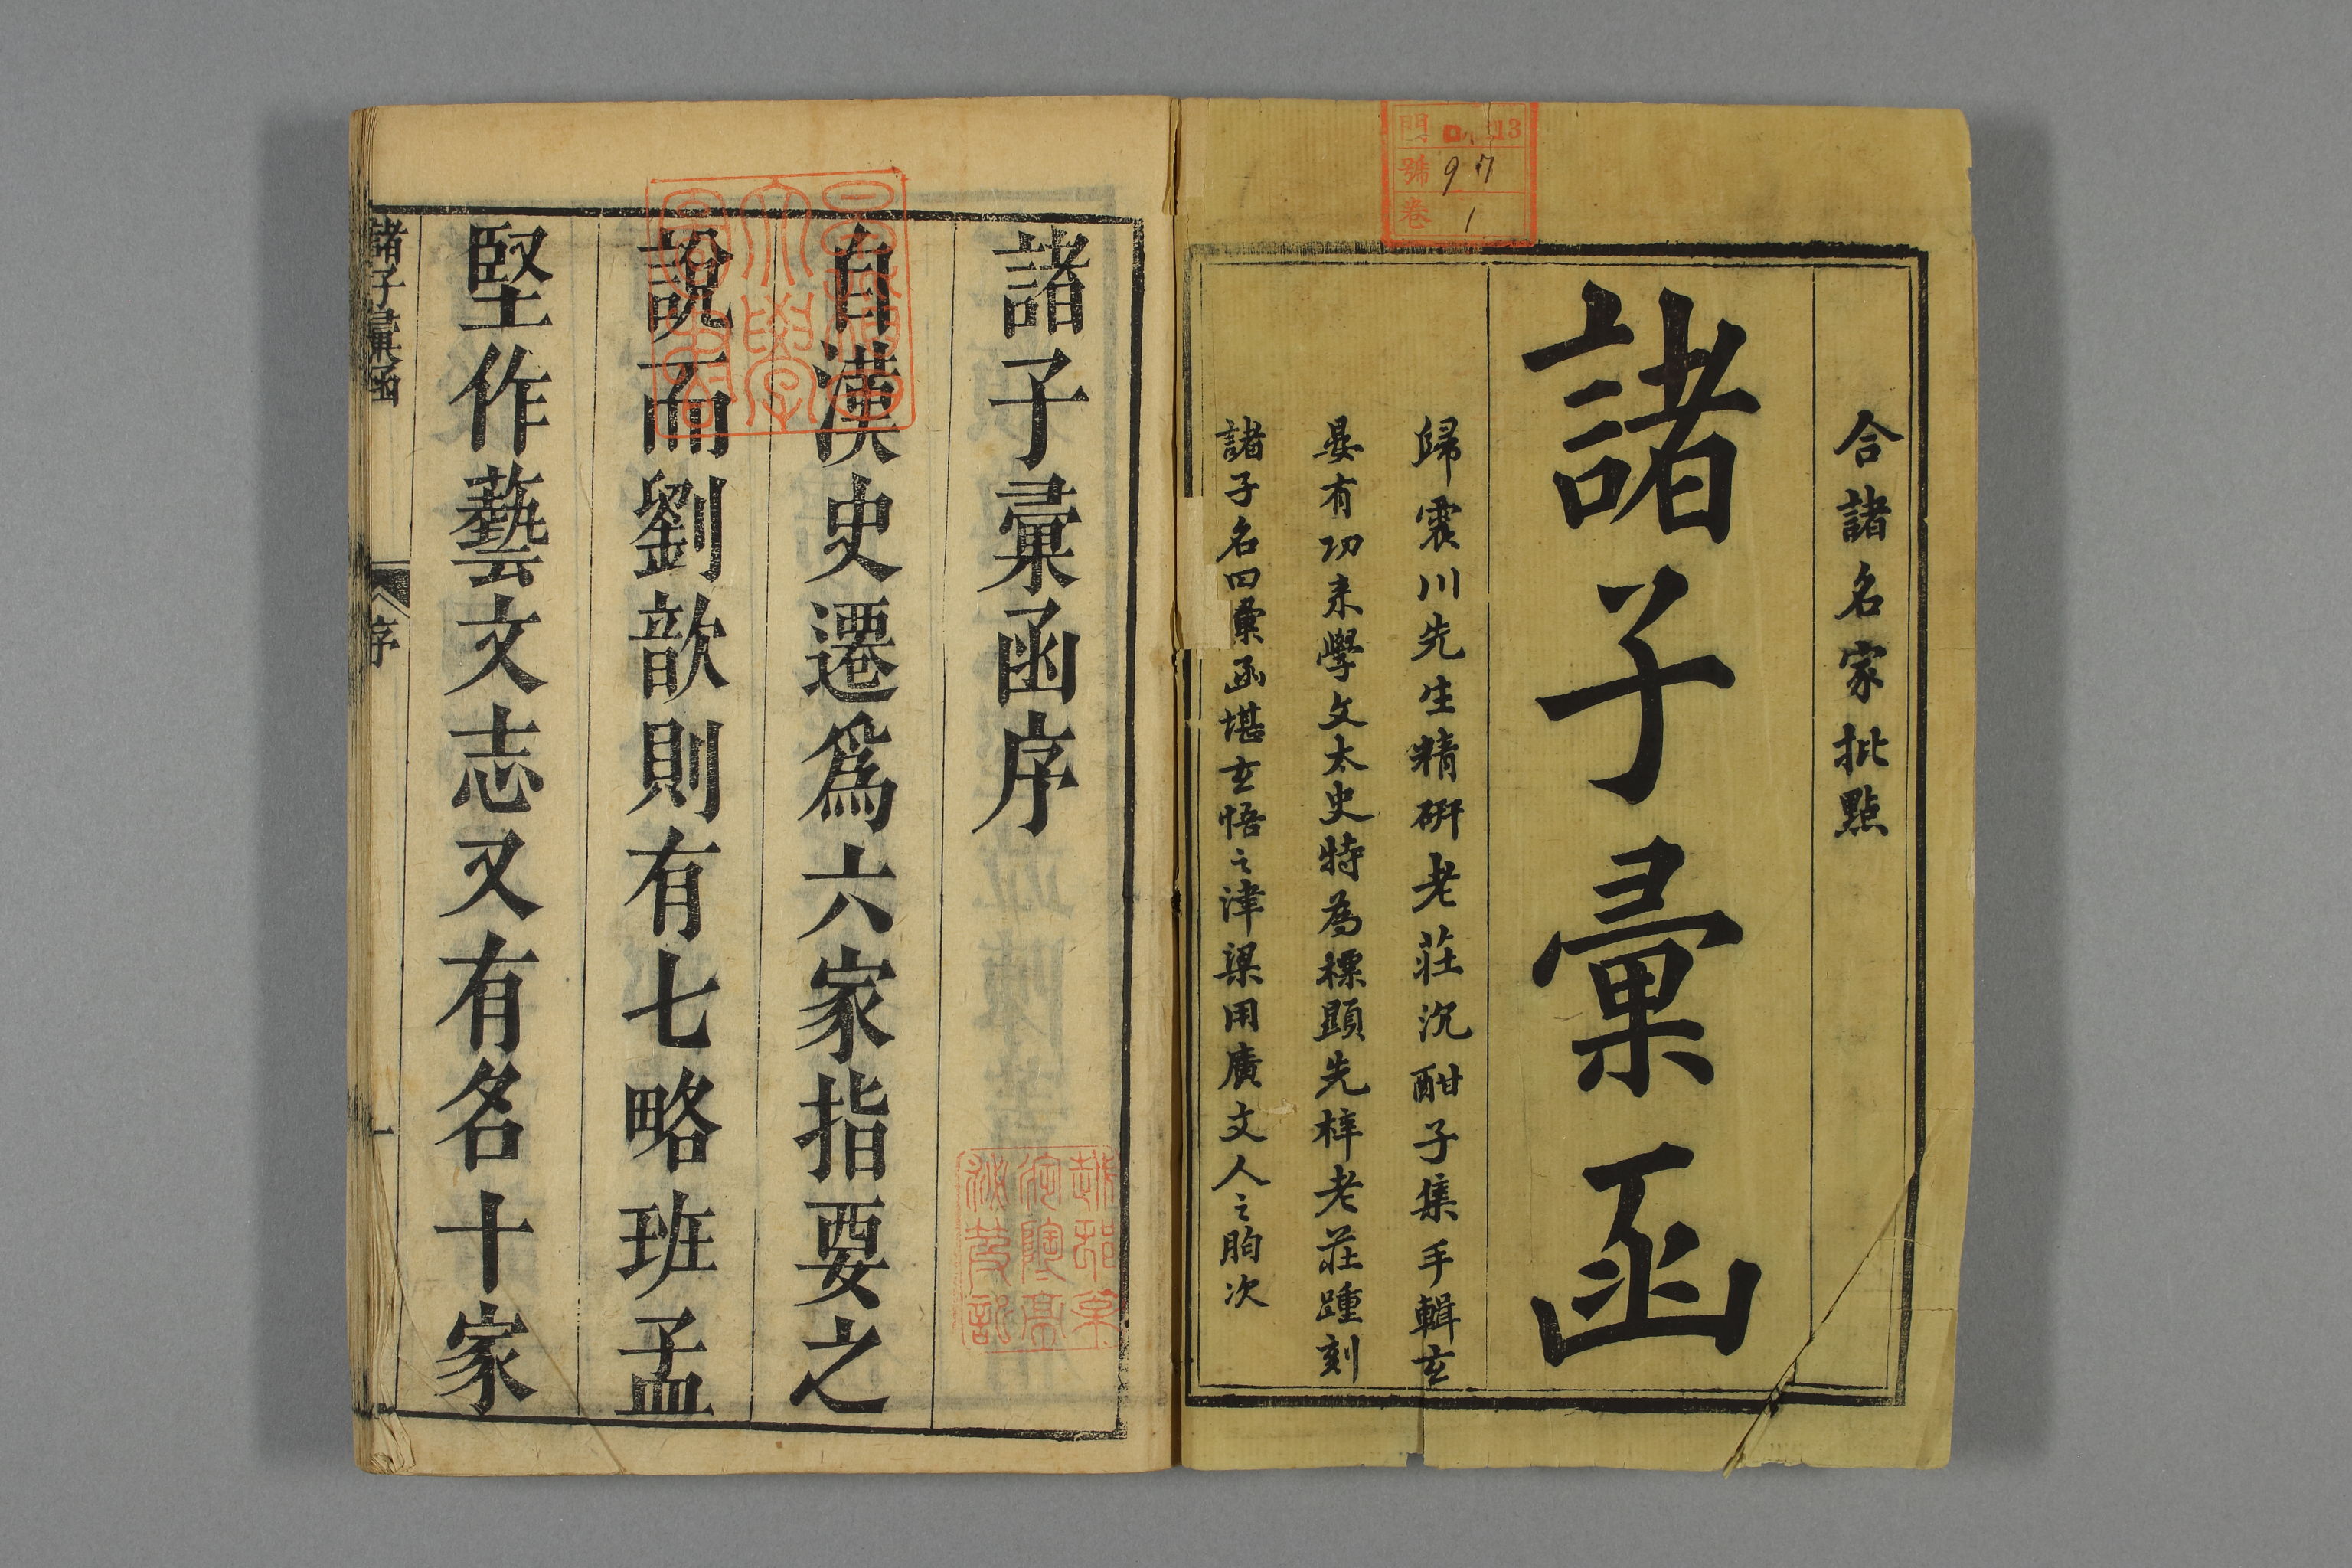 門 ロ 13
號 97
卷 1
合諸名家批點
諸子彙函
歸震川先生精硏老莊沉酣子集手輯玄
晏有功来學文太史特為標顯先梓老莊踵刻
諸子名曰彙函堪玄悟之津梁用廣文人之胸次
諸子彙函序
自漢史遷爲六家指要之
說而劉歆則有七略班孟
堅作藝文志又有名十家
諸子彙函
序
一